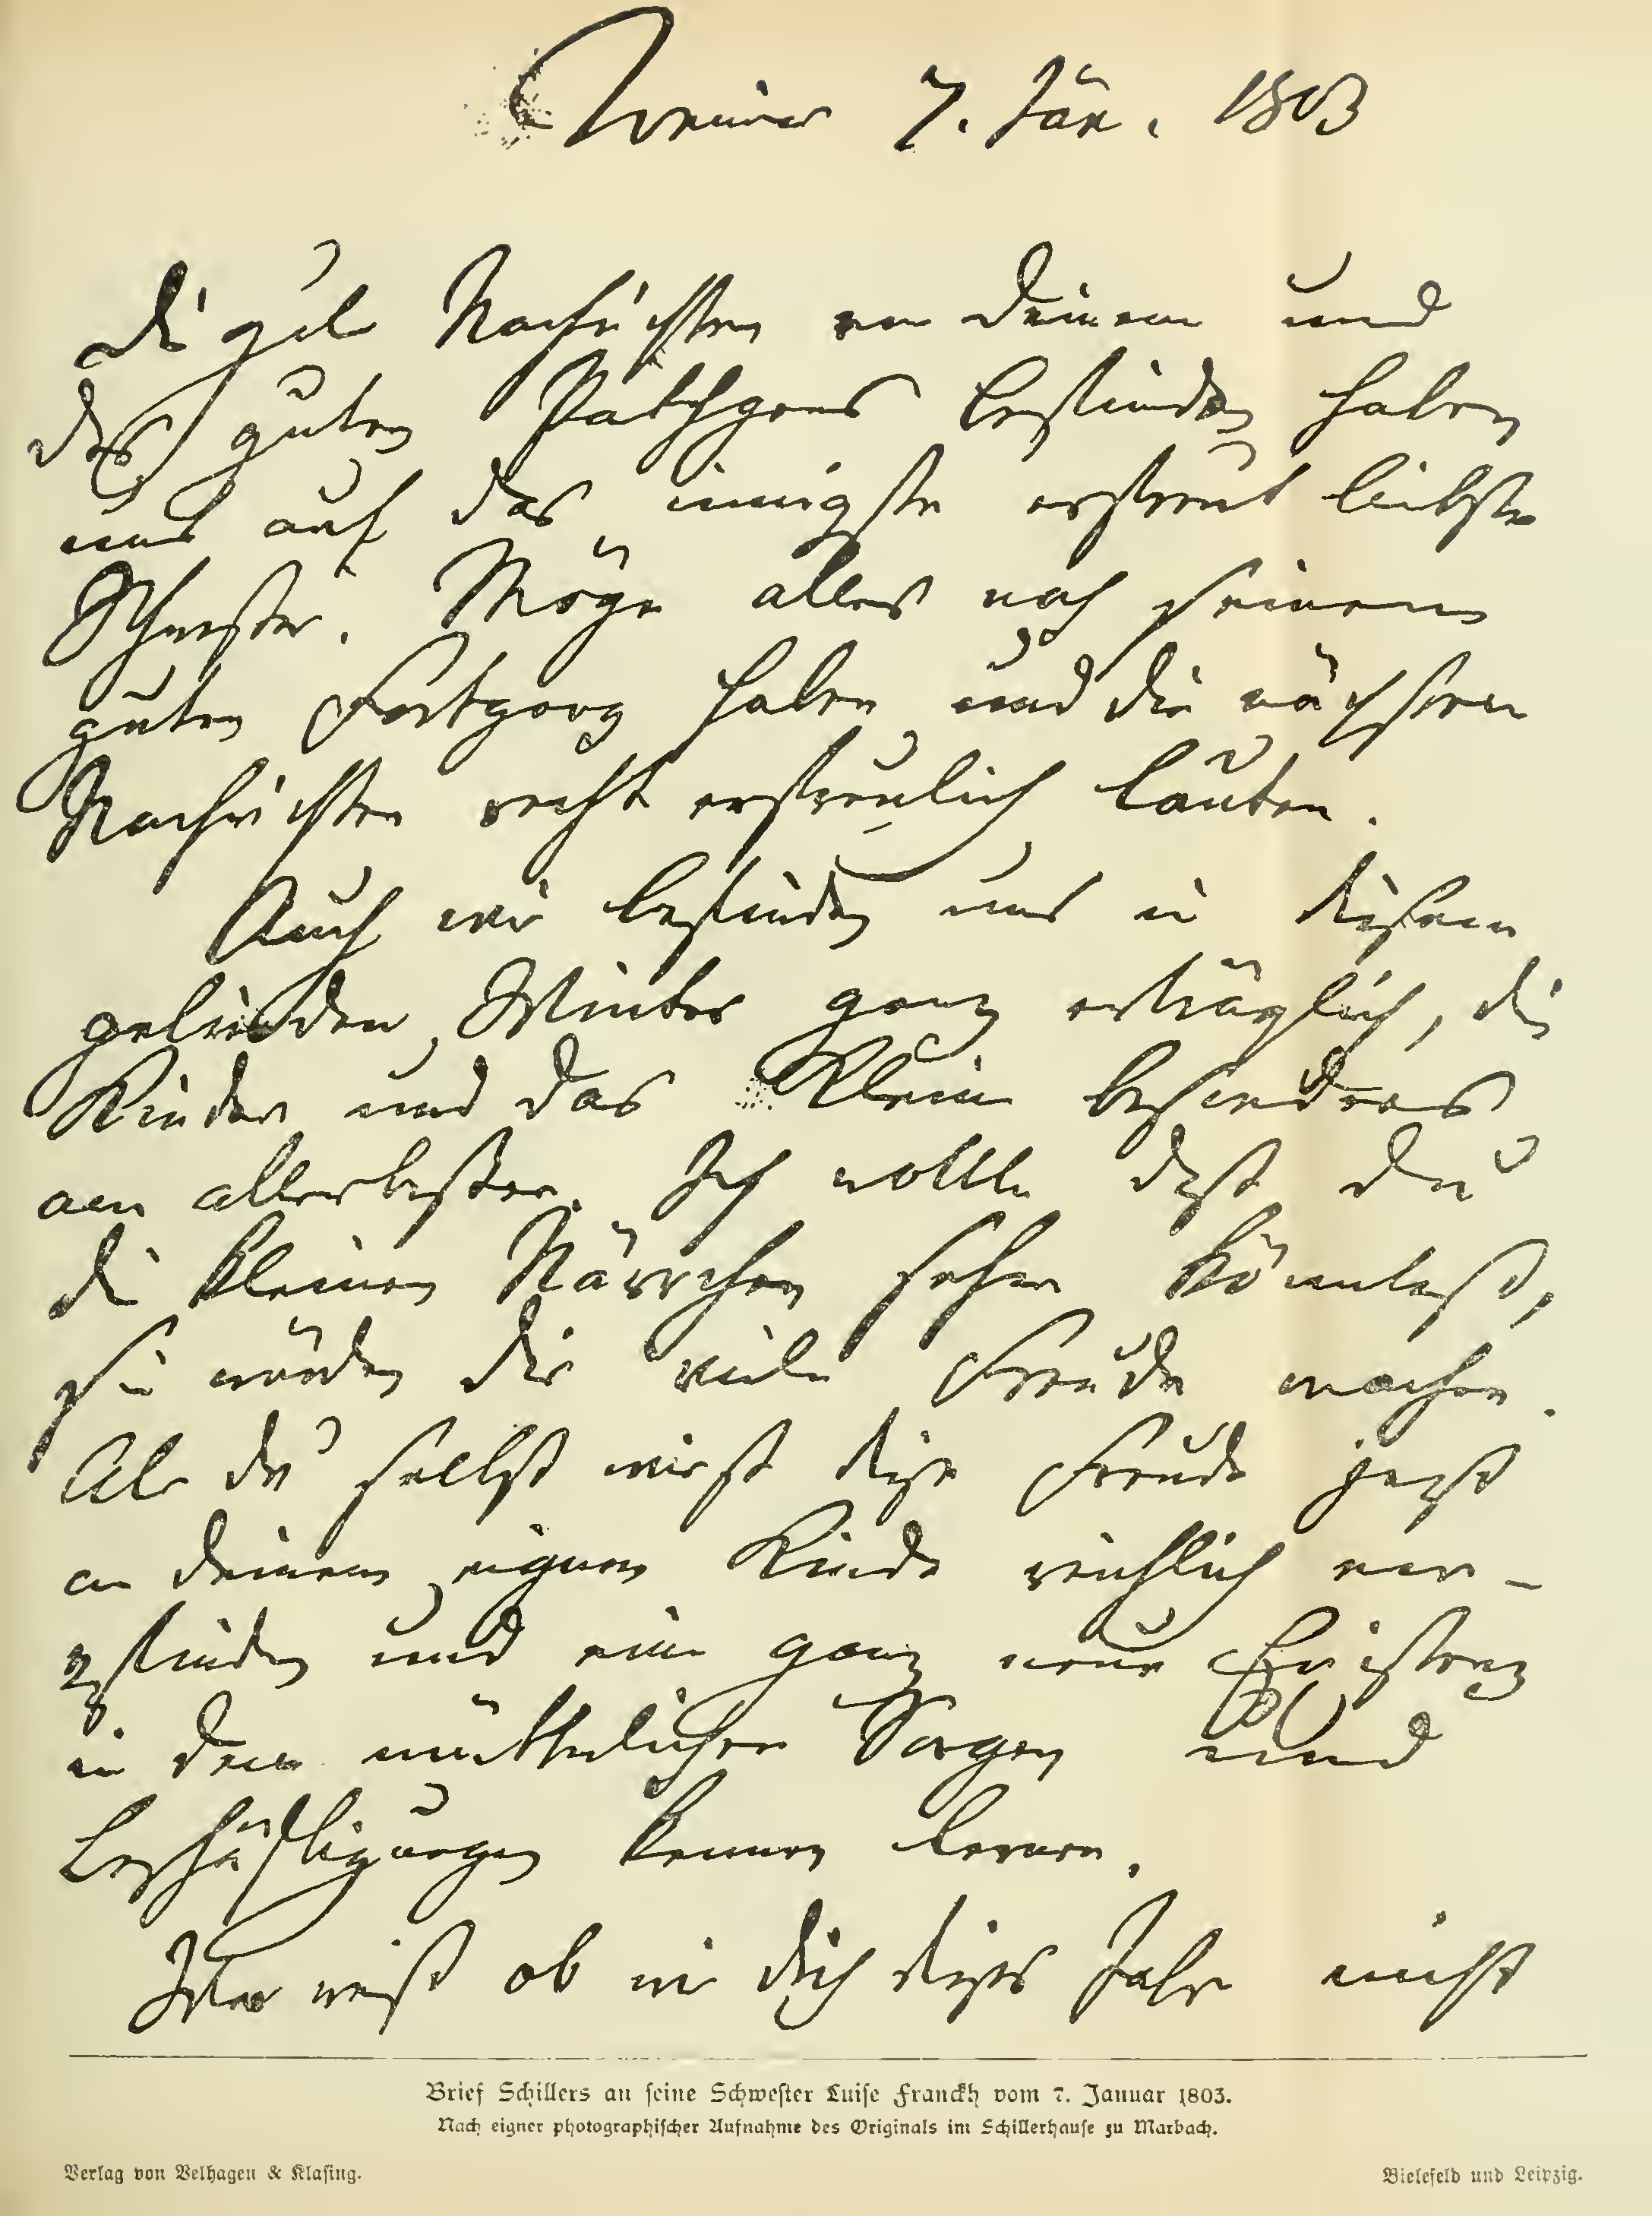 Weimar 7. Jan. 1803
Die gute Nachrichten von Deinem und
des guten Pathchens Befinden haben
uns auf das innigste erfreut liebste
Schwester. Möge alles nach seinem
guten Fortgang haben und die nächsten
Nachrichten recht erfreulich lauten.
Auch wir befinden uns in diesem
gelinden Winter ganz erträglich, die
Kinder und das Kleine besonders
am allerbesten. Ich wollte daß Du
die kleinen Närrchen sehen könntest,
sie würden Dir viele Freude machen.
Du selbst wirst diese Freude jetzt
an Deinem eignen Kinde reichlich em-
pfinden und eine ganz neue Existenz
in den mütterlichen Sorgen und
Beschäftigungen kennen lernen.
Wer weiß ob wir Dich dieses Jahr nicht
Brief Schillers an seine Schwester Luise Franckh vom 7. Januar 1803.
Nach eigner photographischer Aufnahme des Originals im Schillerhause zu Marbach.
Verlag von Velhagen & Klasing.
Bielefeld und Leipzig.